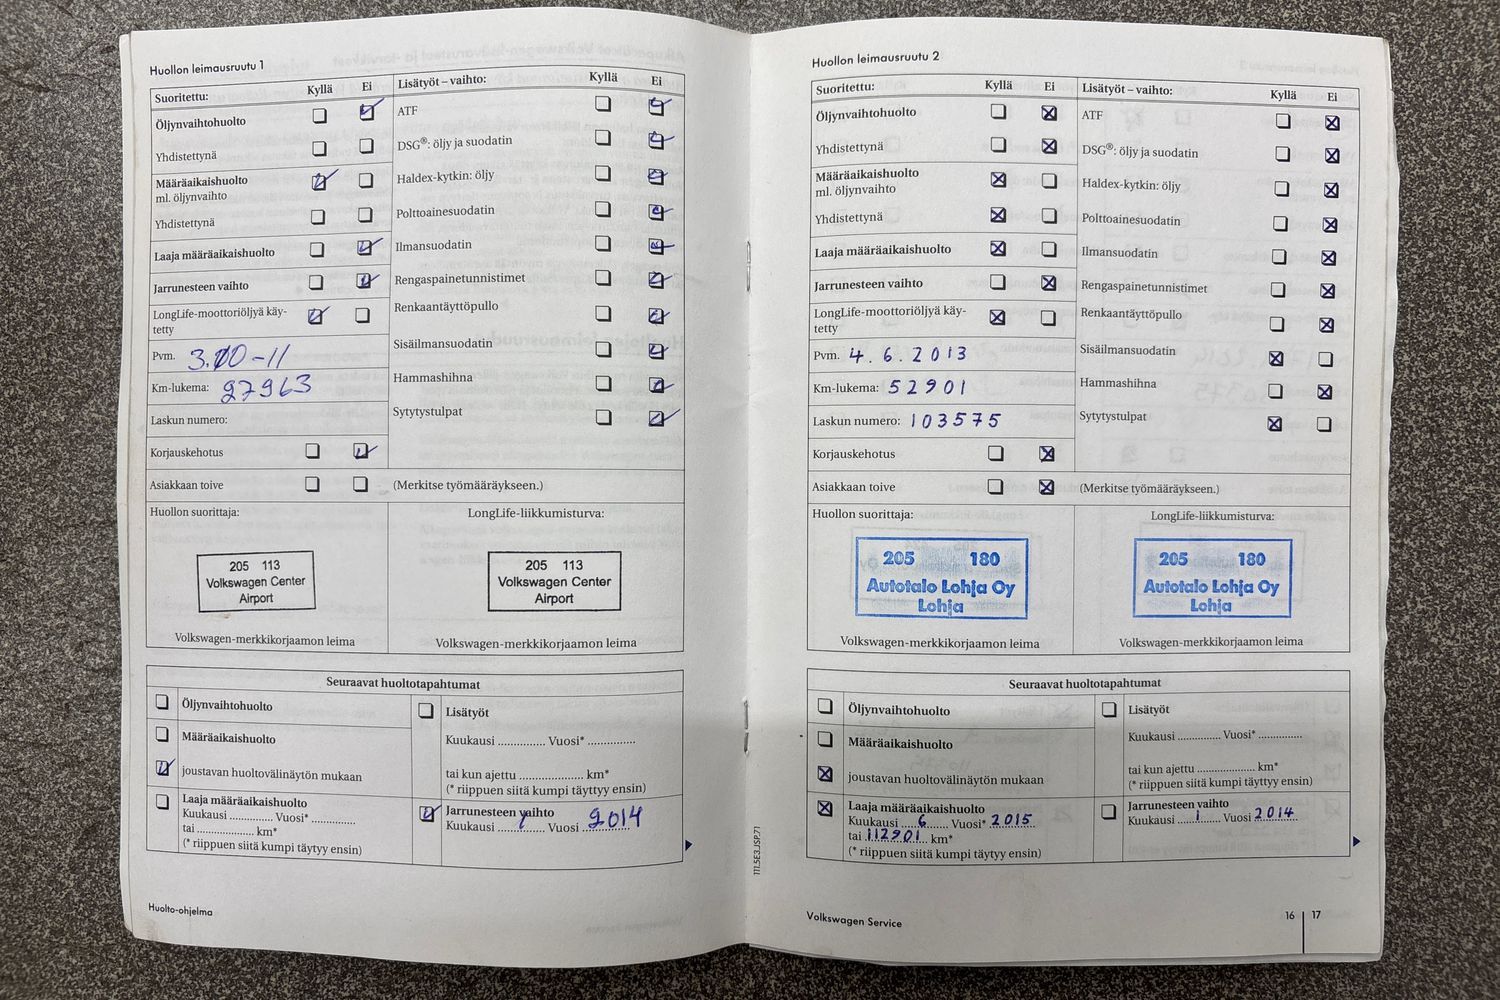 Huollon leimausruutu 1
Suoritettu: Kyllä Ei
Öljynvaihtohuolto
Yhdistettynä
Määräaikaishuolto
ml. öljynvaihto
Yhdistettynä
Laaja määräaikaishuolto
Jarrunesteen vaihto
LongLife-moottoriöljyä käy-
tetty
Pvm. 3.10-11
Km-lukema: 27963
Laskun numero:
Korjauskehotus
Asiakkaan toive
Lisätyöt – vaihto: Kyllä Ei
ATF
DSG®: öljy ja suodatin
Haldex-kytkin: öljy
Polttoainesuodatin
Ilmansuodatin
Rengaspainetunnistimet
Renkaantäyttöpullo
Sisäilmansuodatin
Hammashihna
Sytytystulpat
(Merkitse työmääräykseen.)
Huollon suorittaja:
205 113
Volkswagen Center
Airport
Volkswagen-merkkikorjaamon leima
LongLife-liikkumisturva:
205 113
Volkswagen Center
Airport
Volkswagen-merkkikorjaamon leima
Seuraavat huoltotapahtumat
Öljynvaihtohuolto
Määräaikaishuolto
joustavan huoltovälinäytön mukaan
Laaja määräaikaishuolto
Kuukausi ............... Vuosi* ...............
tai .................... km*
(* riippuen siitä kumpi täytyy ensin)
Lisätyöt
Kuukausi ............... Vuosi* ...............
tai kun ajettu .................... km*
(* riippuen siitä kumpi täyttyy ensin)
Jarrunesteen vaihto
Kuukausi 1 Vuosi 2014
Huolto-ohjelma
Huollon leimausruutu 2
Suoritettu: Kyllä Ei
Öljynvaihtohuolto
Yhdistettynä
Määräaikaishuolto
ml. öljynvaihto
Yhdistettynä
Laaja määräaikaishuolto
Jarrunesteen vaihto
LongLife-moottoriöljyä käy-
tetty
Pvm. 4.6.2013
Km-lukema: 52901
Laskun numero: 103575
Korjauskehotus
Asiakkaan toive
Lisätyöt – vaihto: Kyllä Ei
ATF
DSG®: öljy ja suodatin
Haldex-kytkin: öljy
Polttoainesuodatin
Ilmansuodatin
Rengaspainetunnistimet
Renkaantäyttöpullo
Sisäilmansuodatin
Hammashihna
Sytytystulpat
(Merkitse työmääräykseen.)
Huollon suorittaja:
205 180
Autotalo Lohja Oy
Lohja
Volkswagen-merkkikorjaamon leima
LongLife-liikkumisturva:
205 180
Autotalo Lohja Oy
Lohja
Volkswagen-merkkikorjaamon leima
Seuraavat huoltotapahtumat
Öljynvaihtohuolto
Määräaikaishuolto
joustavan huoltovälinäytön mukaan
Laaja määräaikaishuolto
Kuukausi 6 Vuosi* 2015
tai 112901 km*
(* riippuen siitä kumpi täytyy ensin)
Lisätyöt
Kuukausi ............... Vuosi* ...............
tai kun ajettu .................... km*
(* riippuen siitä kumpi täyttyy ensin)
Jarrunesteen vaihto
Kuukausi 1 Vuosi 2014
111.5E3.JSP.71
Volkswagen Service
16 | 17